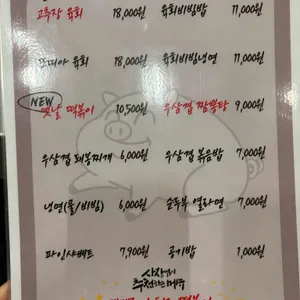 고추장 육회 18,000원 육회비빔밥 11,000원
18,000원 육회비빔냉면 11,000원
NEW
옛날 떡볶이 10,500원 우삼겹 짬뽕탕 9,000원
우삼겹 돼복찌개 6,000원 우삼겹 볶음밥 7,000원
냉면(물/비빔) 6,000원 순두부 열라면 7,000원
파인샤베트 7,900원 공기밥 1,000원
사장님이
추천하는 메뉴